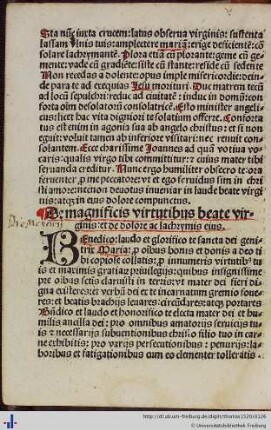 Sta nūc iuxta crucem: latus obserua virginis: sustenta
lassam vlnis tuis: amplectere mariā: erige deficientē: cō
solare lachrymantē. Plora cū ea plorante: geme cū ge-
mente: vade cū gradiēte: siste cū stante: reside cū sedente
Non recedas a dolente: opus imple misericordie: dein-
de para te ad exequias Jesu morituri. Duc matrem tecū
ad locū sepulcri: reduc ad ciuitatē: induc in domū: cum
forta oīm desolatorū consolatricē. Esto minister angeli-
cus: licet hac vita dignior is solatium offerre. Confor-
tatus est enim in agonia sua ab angelo christus: et si non
eguit: voluit tamen ab inferiore visitari: nec renuit con-
solantem. Ecce charissime Joannes ad quā votiua vo-
caris: qualis virgo tibi committitur: et cuius mater tibi
seruanda creditur. Nunc ergo humiliter obsecro te ora
pro me peccatore: vt et ego seruulus sim in chri
sti amore: mente deuotus inueniar in laude beate virgi
nis: atq̄ in eius dolore compassus.
De magnificis virtutibus beate vir-
ginis: et de dolore ac lachrymis eius.
BEnedico: laudo et glorifico te sancta dei geni-
trix Maria: p oībus bonis et donis a deo ti
bi copiose collatis: p innumeris virtutib' tu
is et maximis gratiaz priuilegijs: quibus insignissime
pre oībus sctis claruisti in terris: vt mater dei fieri di-
gna existeres: et verbū dei et te incarnatum gremio foue-
res: et beatis brachijs leuares: circūdares atq̄ portares
Bn̄dico et laudo et honorifico te electa mater dei et hu-
milis ancilla dei: pro omnibus amatoris seruicijs tu-
is: et necessarijs subuentionibus christo filio tuo in car-
ne exhibitis: pro varijs persecutionibus: penurijs: la-
boribus et fatigationibus cum eo clementer tolleratis.
http://dl.ub.uni-freiburg.de/diglit/thomas1520/0126
© Universitätsbibliothek Freiburg